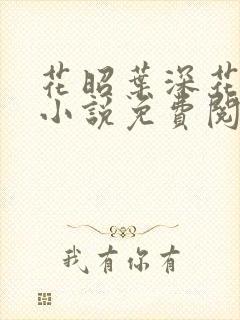 花昭葉深花
小説免費閱
我有你有